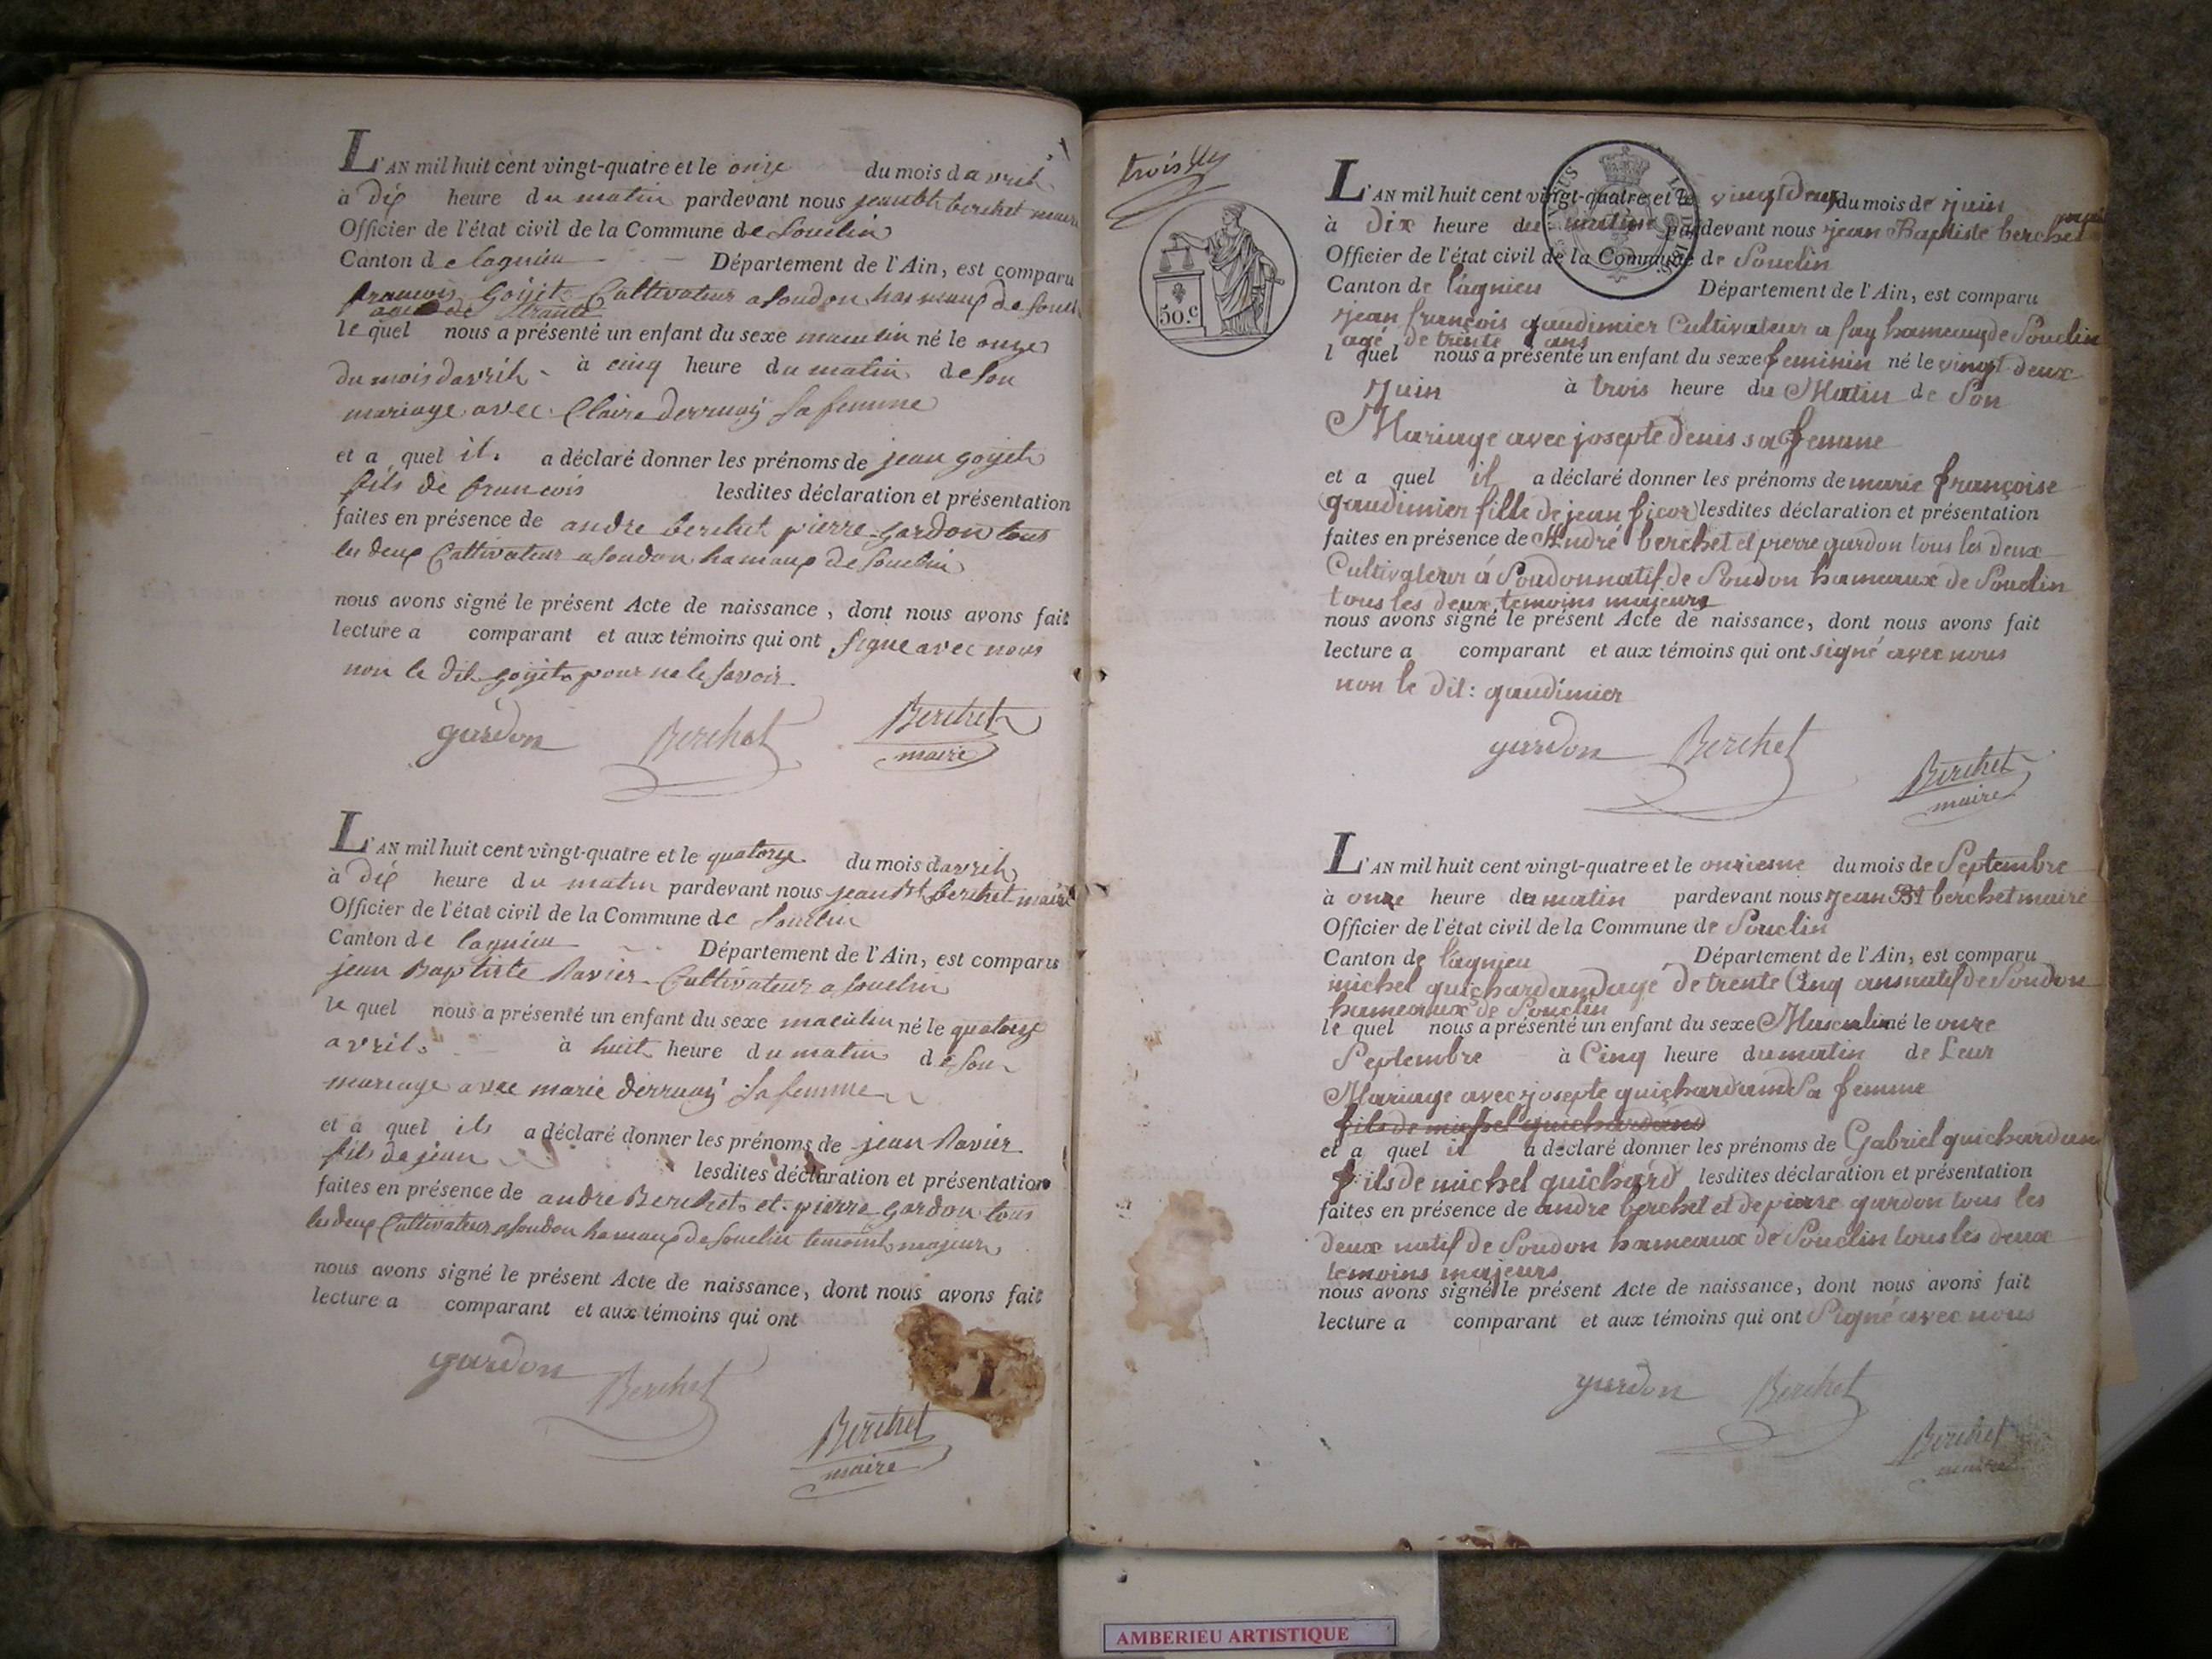 L'AN mil huit cent vingt-quatre et le onze du mois davril
à dix heure du matin pardevant nous jean bte berchet maire
Officier de l'état civil de la Commune de Souclin
Canton de lagnieu Département de l'Ain, est comparu
francois Goyet Cultivateur a soudon hameaux de Souclin
age de trante
le quel nous a présenté un enfant du sexe masculin né le onze
du mois davril à cinq heure du matin de son
mariage avec Claire derruaz sa femme
et a quel il a déclaré donner les prénoms de jean goyet
fils de francois lesdites déclaration et présentation
faites en présence de andre berchet pierre gardon tous
les deux Cultivateur a soudon hamaux de Souclin
nous avons signé le présent Acte de naissance, dont nous avons fait
lecture a comparant et aux témoins qui ont signe avec nous
non le dit goyet pour ne le savoir
gardon Berchet Berchet
maire
L'AN mil huit cent vingt-quatre et le quatorze du mois davril
à dix heure du matin pardevant nous jean Bt berchet maire
Officier de l'état civil de la Commune de Souclin
Canton de lagnieu Département de l'Ain, est comparu
jean Baptiste Ravier Cultivateur a Souclin
le quel nous a présenté un enfant du sexe masculin né le quatorze
avril à huit heure du matin de son
mariage avec marie derruaz sa femme
et a quel il a déclaré donner les prénoms de jean Ravier
fils de jean lesdites déclaration et présentation
faites en présence de andre Berchet et pierre gardon tous
les deux Cultivateur a soudon hamaux de Souclin temoins majeur
nous avons signé le présent Acte de naissance, dont nous avons fait
lecture a comparant et aux témoins qui ont
gardon
Berchet
Berchet
maire
trois
50.c
L'AN mil huit cent vingt-quatre et le vingt deux du mois de juin
à dix heure du matin pardevant nous jean Baptiste berchet maire
Officier de l'état civil de la Commune de Souclin
Canton de lagnieu Département de l'Ain, est comparu
jean françois gaudimier Cultivateur a fay hameaux de Souclin
agé de trente ans
l quel nous a présenté un enfant du sexe feminin né le vingt deux
juin à trois heure du Matin de Son
Mariage avec josepte denis sa femme
et a quel il a déclaré donner les prénoms de marie françoise
gaudimier fille de jean lesdites déclaration et présentation
faites en présence de André berchet et pierre gardon tous les deux
Cultivateur á Soudon natif de Soudon hameaux de Souclin
tous les deux temoins majeurs
nous avons signé le présent Acte de naissance, dont nous avons fait
lecture a comparant et aux témoins qui ont signé avec nous
non le dit: gaudimier
gardon Berchet
Berchet
maire
L'AN mil huit cent vingt-quatre et le onzieme du mois de Septembre
à onze heure du matin pardevant nous jean Bt berchet maire
Officier de l'état civil de la Commune de Souclin
Canton de lagnieu Département de l'Ain, est comparu
michel guichardand agé de trente Cinq ans natif de Soudon
hameaux de Souclin
le quel nous a présenté un enfant du sexe Masculin né le onze
Septembre à Cinq heure du matin de Leur
Mariage avec josepte guichardand Sa femme
fils de michel guichardand
et a quel il a déclaré donner les prénoms de Gabriel guichardan
fils de michel guichard lesdites déclaration et présentation
faites en présence de andré berchet et de pierre gardon tous les
deux natif de Soudon hameaux de Souclin tous les deux
temoins majeurs
nous avons signé le présent Acte de naissance, dont nous avons fait
lecture a comparant et aux témoins qui ont Signé avec nous
gardon Berchet
Berchet
maire
AMBERIEU ARTISTIQUE